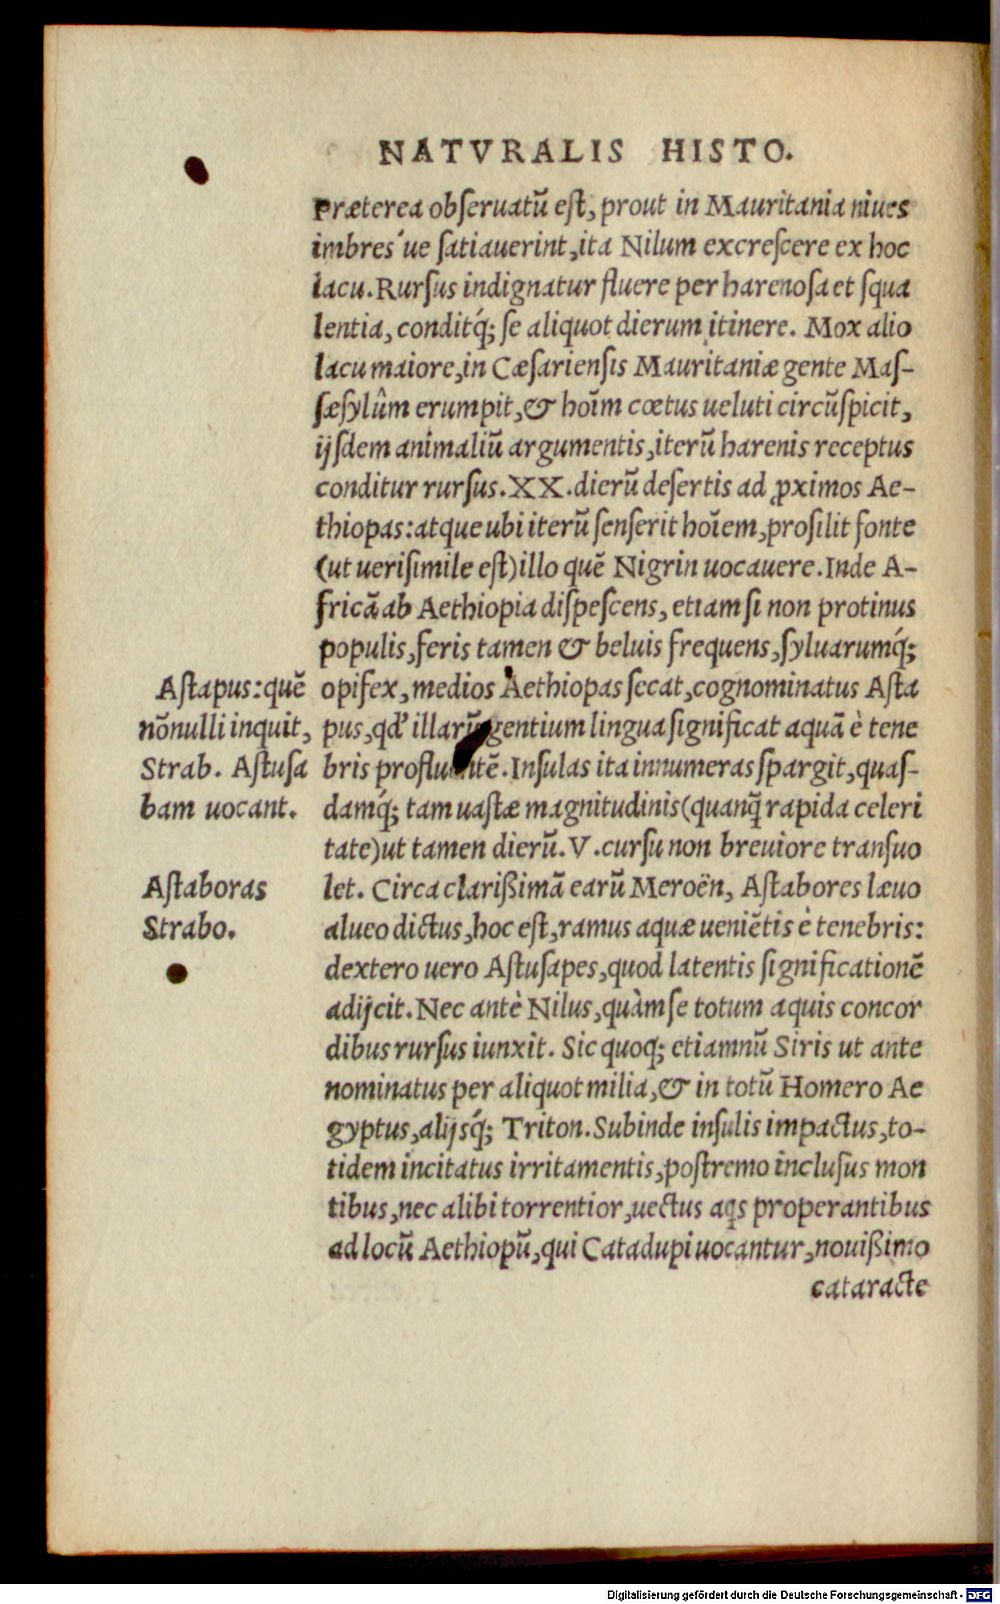 NATVRALIS HISTO.
Præterea obseruatũ est, prout in Mauritania niues
imbres´ue satiauerint, ita Nilum excrescere ex hoc
lacu. Rursus indignatur fluere per harenosa et squa
lentia, conditq́; se aliquot dierum itinere. Mox alio
lacu maiore, in Cæsariensis Mauritaniæ gente Mas-
sæsylûm erumpit, & hoĩm cœtus ueluti circũspicit,
ijsdem animaliũ argumentis, iterũ harenis receptus
conditur rursus. XX. dierũ desertis ad ꝓximos Ae-
thiopas: atque ubi iterũ senserit hoĩem, prosilit fonte
(ut uerisimile est) illo quẽ Nigrin uocauere. Inde A-
fricã ab Aethiopia dispescens, etiam si non protinus
populis, feris tamen & beluis frequens, syluarumq́;
opifex, medios Aethiopas secat, cognominatus Asta
pus, qd' illarũ gentium lingua significat aquã è tene
bris profluentẽ. Insulas ita innumeras spargit, quas-
damq́; tam uastæ magnitudinis (quanq̃ rapida celeri
tate) ut tamen dierũ. V. cursu non breuiore transuo
let. Circa clarißimã earũ Meroën, Astabores læuo
alueo dictus, hoc est, ramus aquæ ueniẽtis è tenebris:
dextero uero Astusapes, quod latentis significationẽ
adijcit. Nec antè Nilus, quàm se totum aquis concor
dibus rursus iunxit. Sic quoq; etiamnũ Siris ut ante
nominatus per aliquot milia, & in totũ Homero Ae
gyptus, alijsq́; Triton. Subinde insulis impactus, to-
tidem incitatus irritamentis, postremo inclusus mon
tibus, nec alibi torrentior, uectus aq̃s properantibus
ad locũ Aethiopũ, qui Catadupi uocantur, nouißimo
cataracte
Astapus: quẽ
nõnulli inquit,
Strab. Astusa
bam uocant.
Astaboras
Strabo.
Digitalisierung gefördert durch die Deutsche Forschungsgemeinschaft - DFG